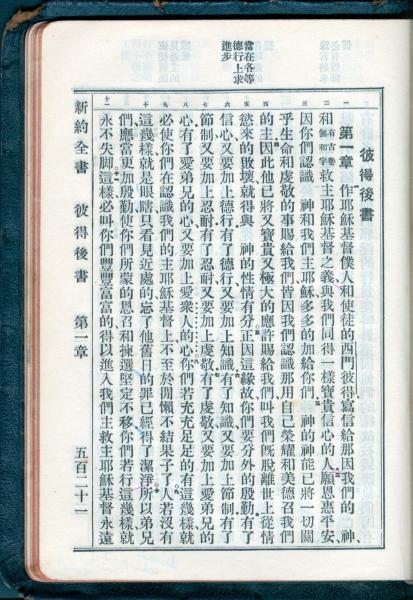 當在各等
德行上求
進步
一 二 三 四 五 六 七 八 九 十 十一
彼得後書
第一章 作耶穌基督僕人和使徒的西門彼得寫信給那因我們的 神
和有古卷無和字救主耶穌基督之義與我們同得一樣寶貴信心的人願恩惠平安
因你們認識 神和我們主耶穌多多的加給你們 神的神能已將一切關
乎生命和虔敬的事賜給我們皆因我們認識那用自己榮耀和美德召我們
的主因此他已將又寶貴又極大的應許賜給我們叫我們既脫離世上從情
慾來的敗壞就得與 神的性情有分正因這緣故你們要分外的殷勤有了
信心又要加上德行有了德行又要加上知識有了知識又要加上節制有了
節制又要加上忍耐有了忍耐又要加上虔敬有了虔敬又要加上愛弟兄的
心有了愛弟兄的心又要加上愛衆人的心你們若充充足足的有這幾樣就
必使你們在認識我們的主耶穌基督上不至於閒懶不結果子了人若沒有
這幾樣就是眼瞎只看見近處的忘了他舊日的罪已經得了潔淨所以弟兄
們應當更加殷勤使你們所蒙的恩召和揀選堅定不移你們若行這幾樣就
永不失脚這樣必叫你們豐豐富富的得以進入我們主救主耶穌基督永遠
新約全書 彼得後書 第一章 五百二十一